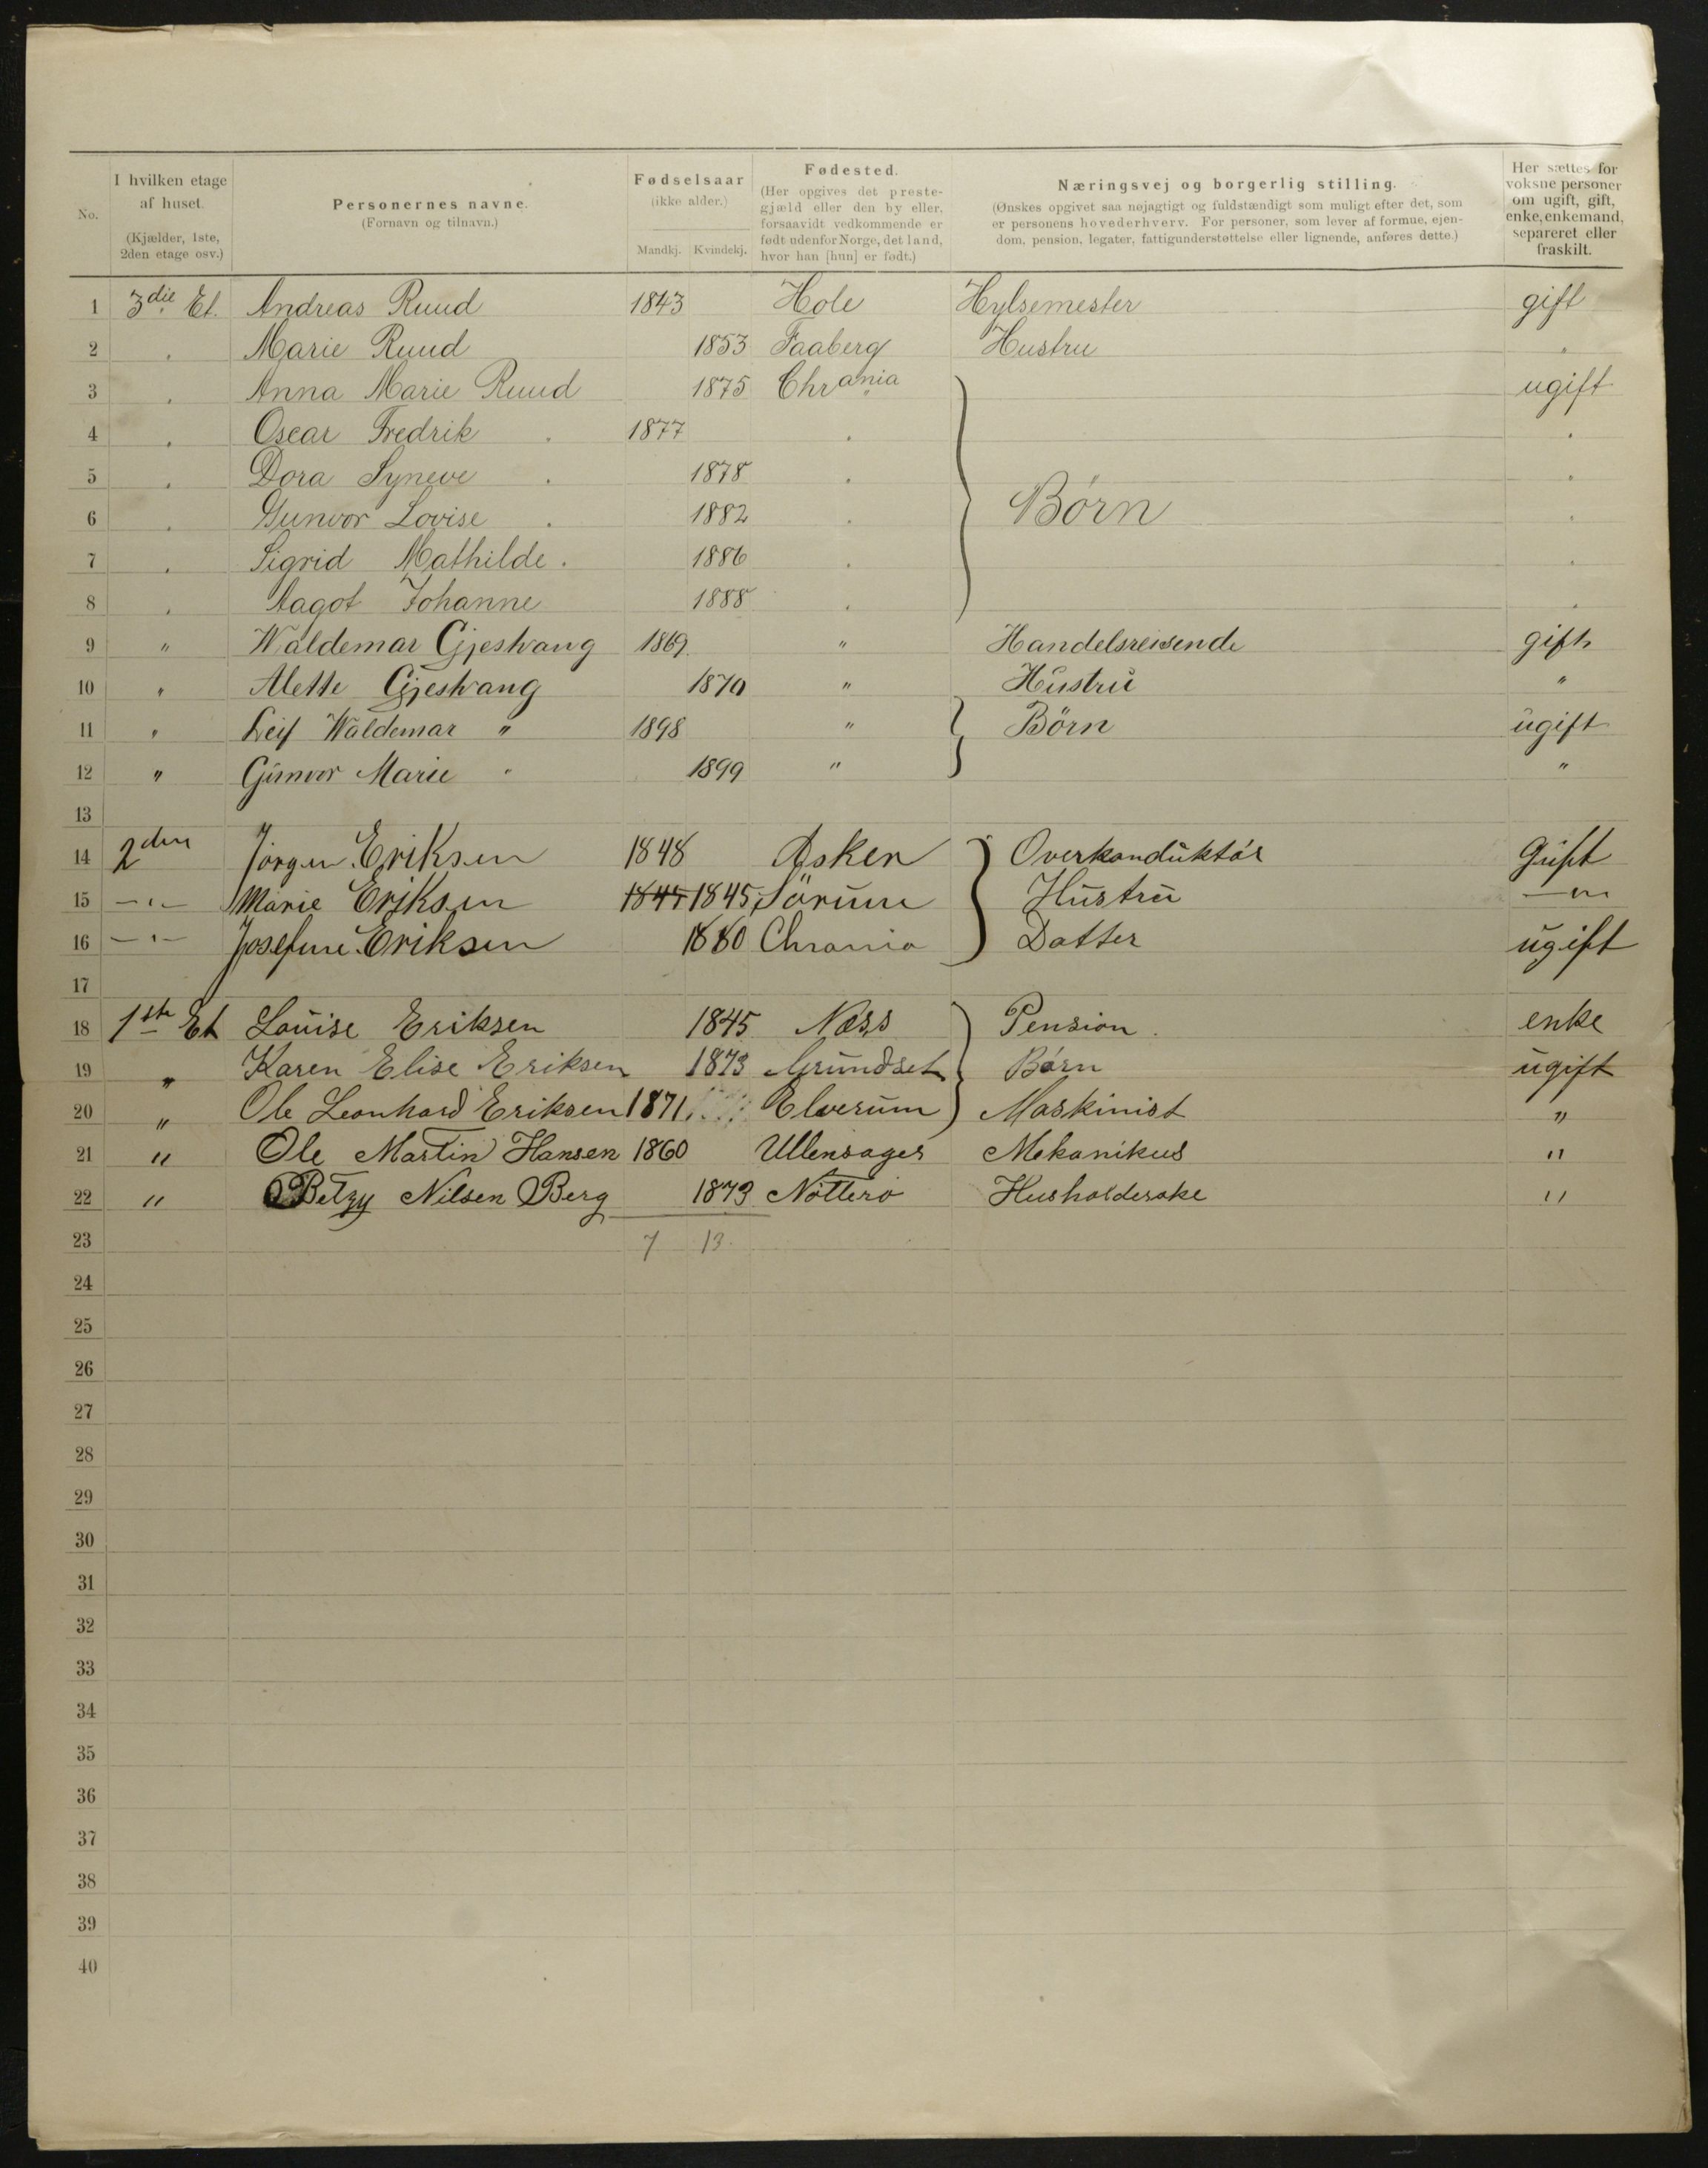 No.
I hvilken etage af huset. (Kjælder, 1ste, 2den etage osv.)
Personernes navne. (Fornavn og tilnavn.)
Fødselsaar (ikke alder.) Mandkj. Kvindekj.
Fødested. (Her opgives det prestegjæld eller den by eller, forsaavidt vedkommende er født udenfor Norge, det land, hvor han [hun] er født.)
Næringsvej og borgerlig stilling. (Ønskes opgivet saa nøjagtigt og fuldstændigt som muligt efter det, som er personens hovederhverv. For personer, som lever af formue, ejendom, pension, legater, fattigunderstøttelse eller lignende, anføres dette.)
Her sættes for voksne personer om ugift, gift, enke, enkemand, separeret eller fraskilt.
1 3die Et. Andreas Ruud 1843 Hole Hylsemester gift
2 " Marie Ruud 1853 Faaberg Hustru "
3 " Anna Marie Ruud 1875 Chrania ugift
4 " Oscar Fredrik " 1877 " "
5 " Dora Syneve " 1878 " "
6 " Gunvor Lovise " 1882 " Børn "
7 " Sigrid Mathilde " 1886 " "
8 " Aagot Johanne 1888 " "
9 " Waldemar Gjestvang 1869 " Handelsreisende gift
10 " Alette Gjestvang 1870 " Hustru "
11 " Leif Waldemar " 1898 " Börn ugift
12 " Gunvor Marie " 1899 " "
13
14 2den Jörgen Eriksen 1848 Asker Overkonduktör Gift
15 -"- Marie Eriksen 1845 1845 Sörum Hustru -"-
16 -"- Josefine Eriksen 1880 Chrania Datter ugift
17
18 1ste Et Louise Eriksen 1845 Næss Pension. enke
19 " Karen Elise Eriksen 1873 Grundset Børn ugift
20 " Ole Leonhard Eriksen 1871 Elverum Maskinist "
21 " Ole Martin Hansen 1860 Ullensager Mekanikus "
22 " Betzy Nilsen Berg 1873 Nötterö Husholderske "
23 7 13
24
25
26
27
28
29
30
31
32
33
34
35
36
37
38
39
40